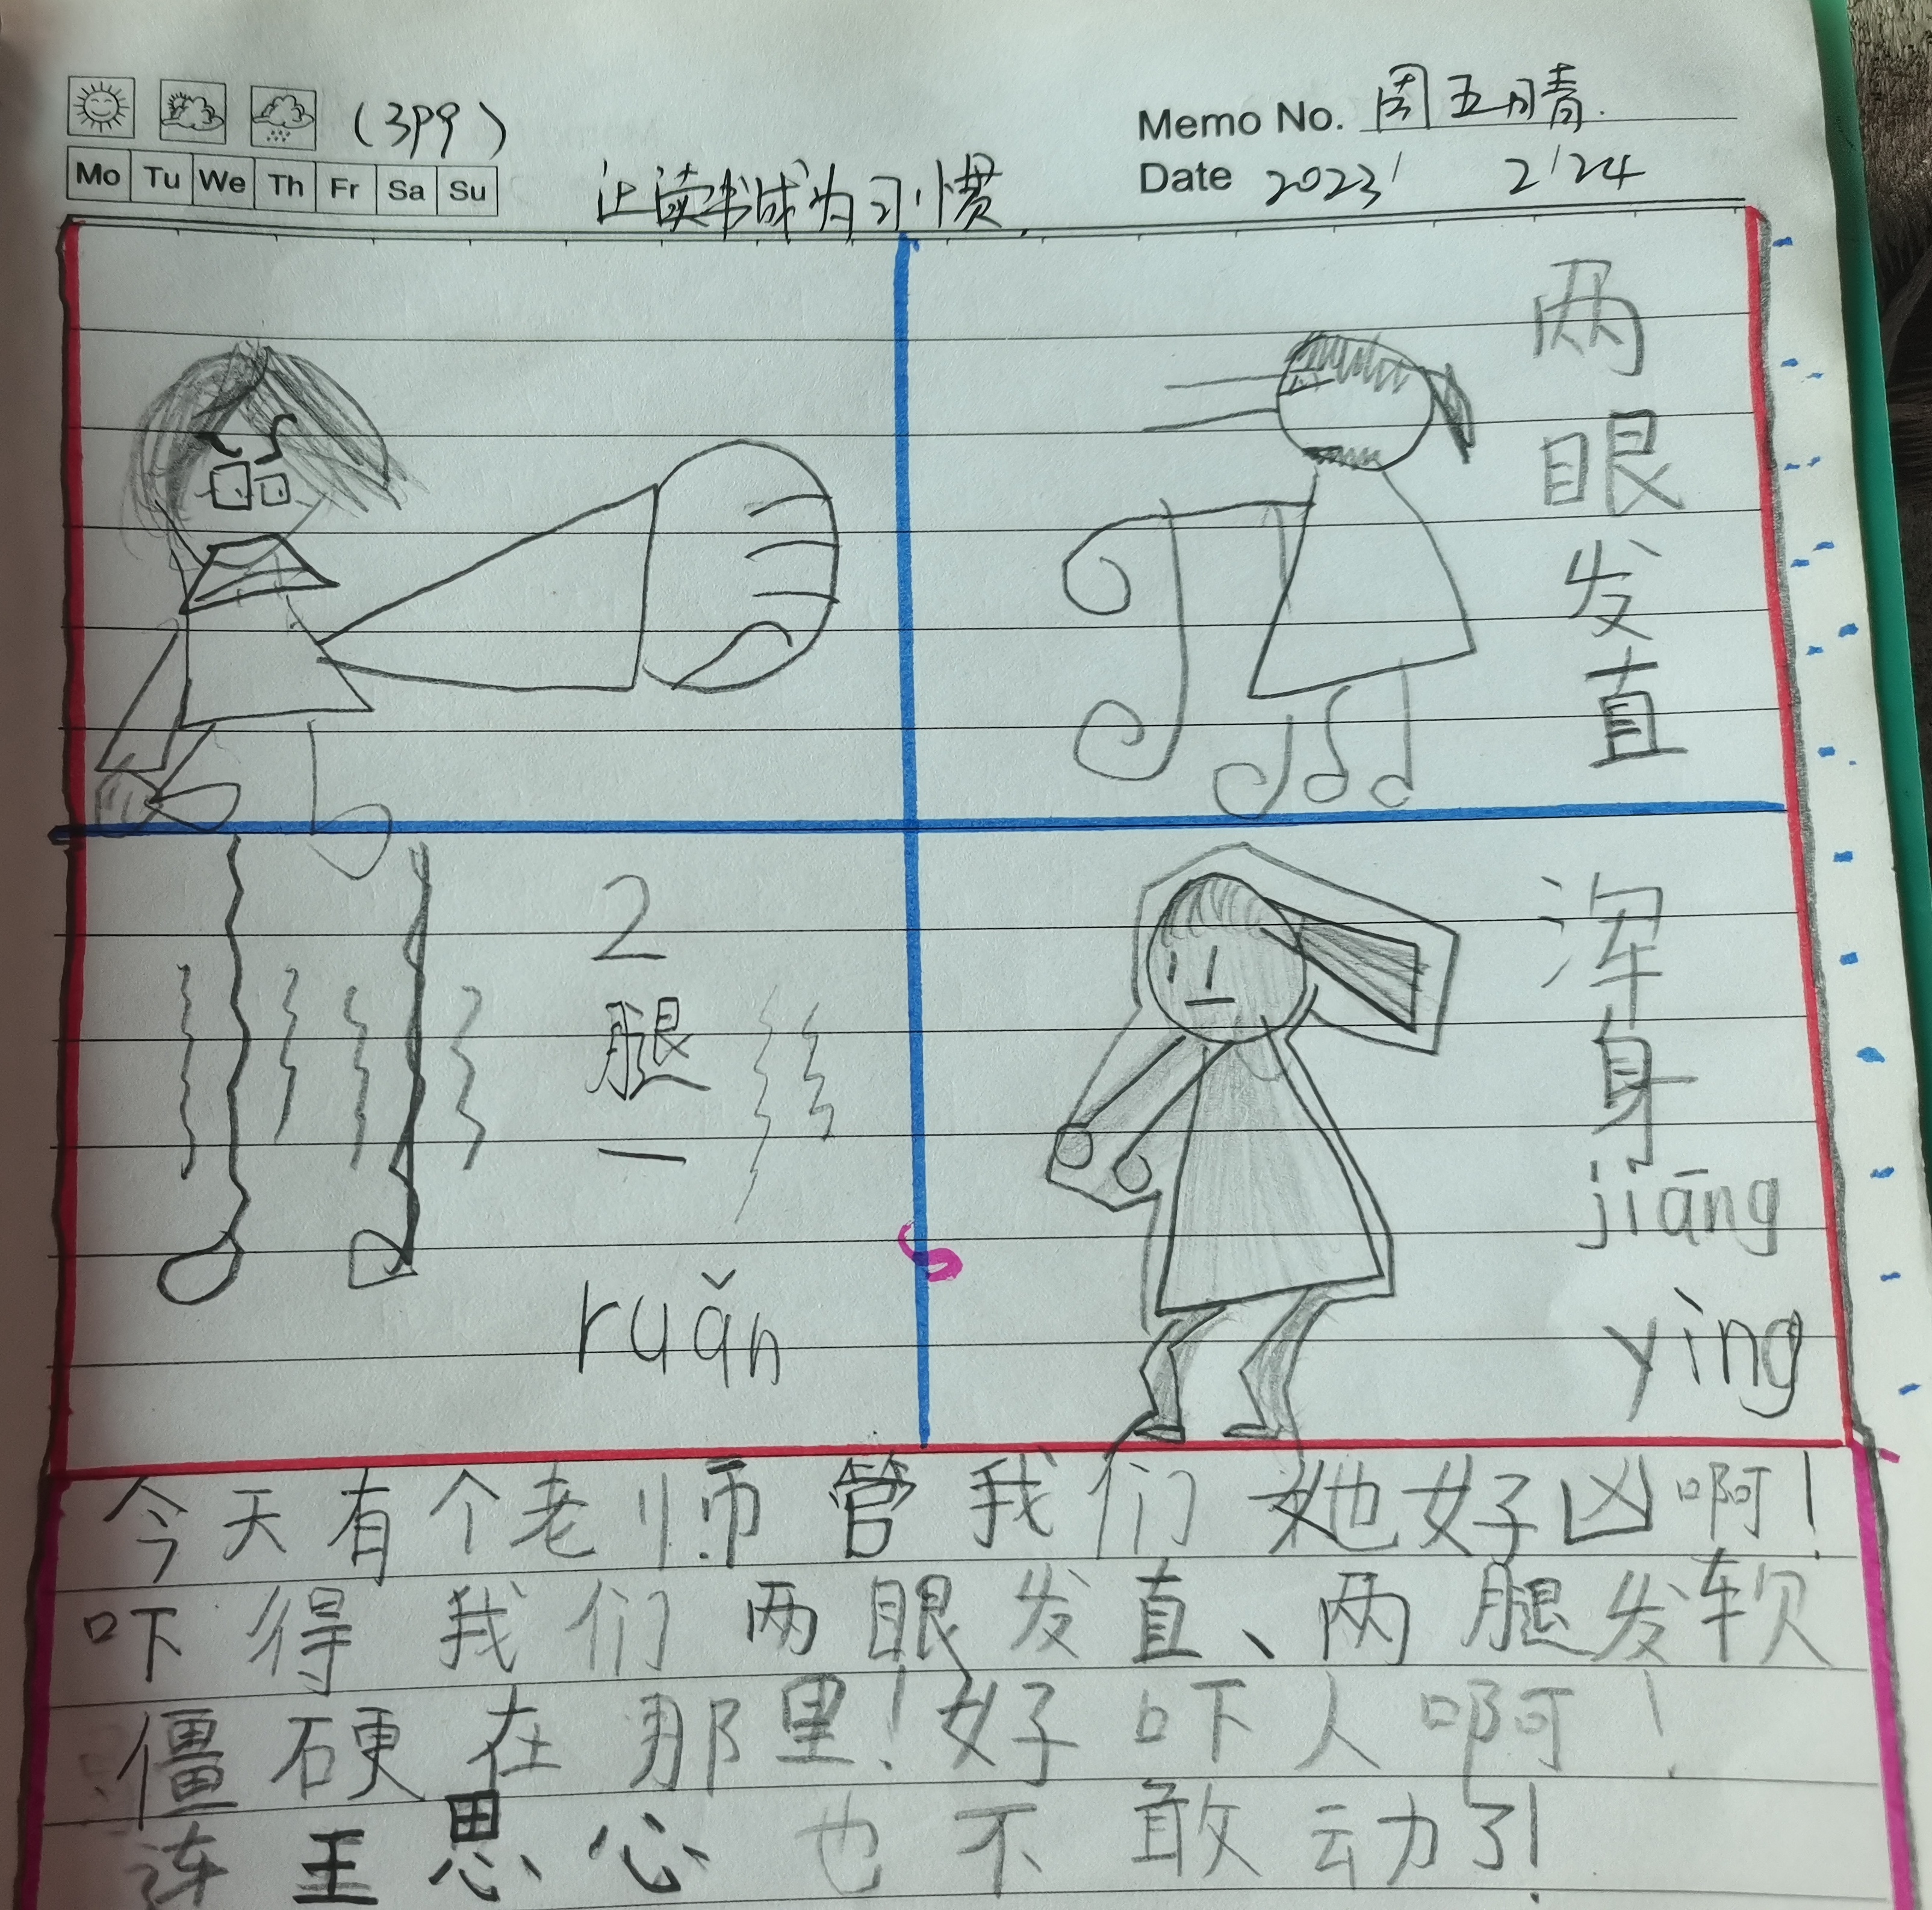 (3P9)
Memo No. 周五晴.
Mo Tu We Th Fr Sa Su
让读书成为习惯.
Date 2023' 2'24
两
眼
发
直
2
腿
一
ruǎn
浑
身
jiāng
yìng
今天有个老师管我们她好凶啊！
吓得我们两眼发直、两腿发软
僵硬在那里！好吓人啊！
连王思心也不敢动了！